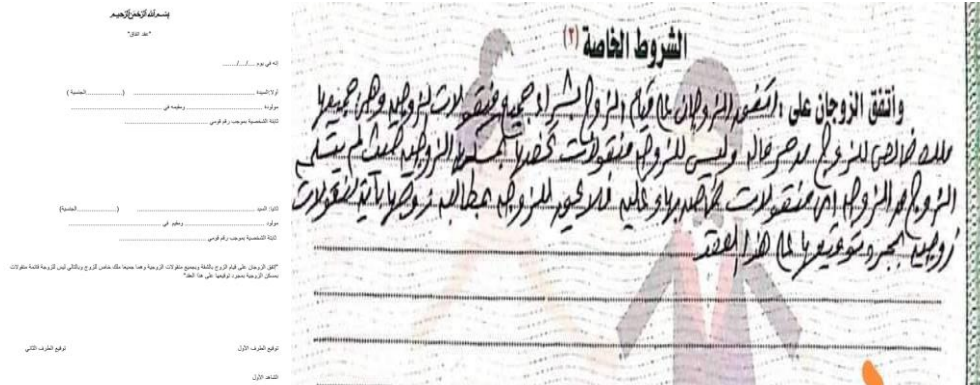 بسم الله الرحمن الرحيم
"عقد اتفاق"
إنه في يوم ..../..../........
أولا: السيدة ........................ (................الجنسية )
مولودة ........................ ومقيمه في ........................
ثابتة الشخصية بموجب رقم قومي ........................
ثانيا: السيد ........................ (................الجنسية)
مولود ........................ ومقيم في ........................
ثابتة الشخصية بموجب رقم قومي ........................
"اتفق الزوجان على قيام الزوج بالشقة وبجميع منقولات الزوجية وهما جميعا ملك خاص للزوج وبالتالي ليس للزوجة قائمة منقولات
بمسكن الزوجية بمجرد توقيعها على هذا العقد"
توقيع الطرف الأول
توقيع الطرف الثاني
الشاهد الأول
الشروط الخاصة (٢)
وأتفق الزوجان على : اتفق الزوجان على قيام الزوج بشراء جميع منقولات الزوجية وهى جميعها
ملك خالص للزوج من حر ماله وليس للزوجة منقولات تخصها بمسكن الزوجية حيث لم يتسلم
الزوج من الزوجة أى منقولات خاصه بها وعليه فلا يجوز للزوجة مطالبة زوجها بأية منقولات
زوجية بمجرد توقيعها على هذا العقد